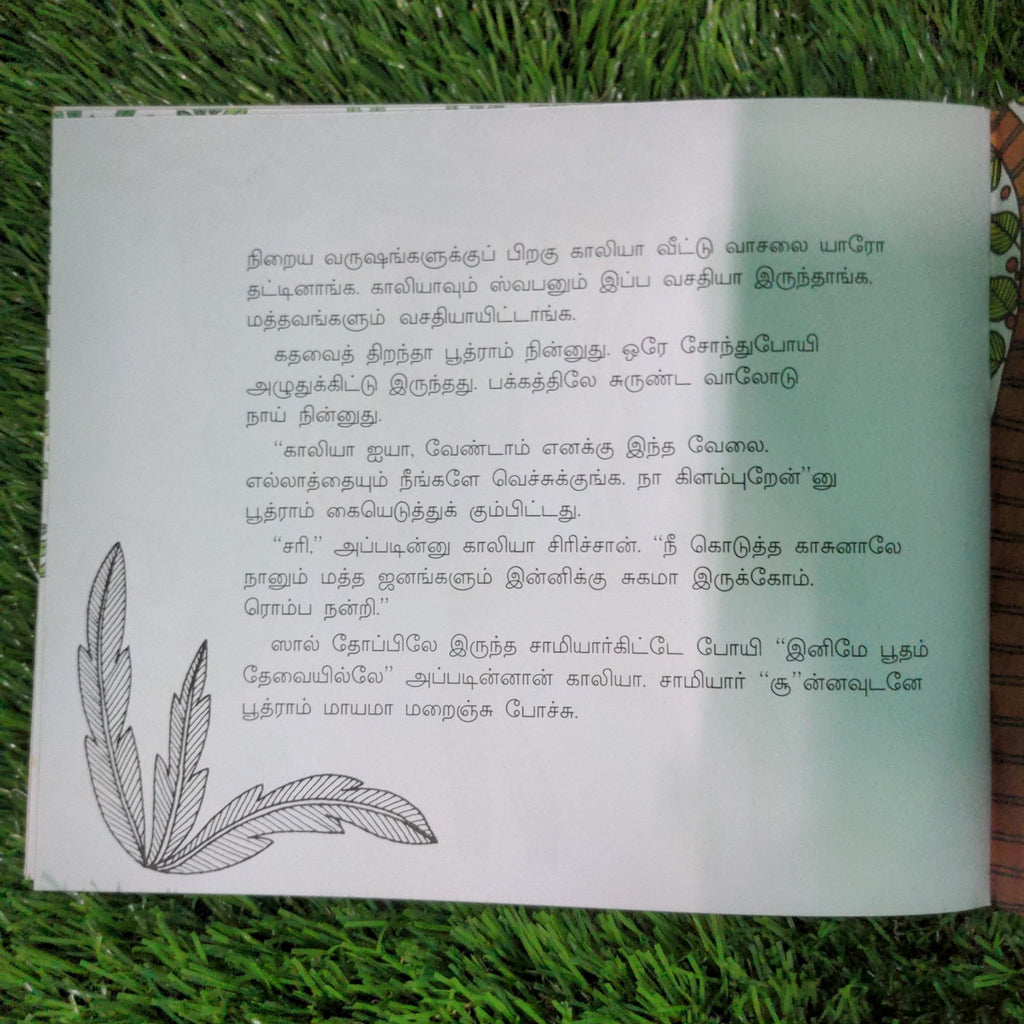 நிறைய வருஷங்களுக்குப் பிறகு காலியா வீட்டு வாசலை யாரோ
தட்டினாங்க. காலியாவும் ஸ்வபனும் இப்ப வசதியா இருந்தாங்க.
மத்தவங்களும் வசதியாயிட்டாங்க.
கதவைத் திறந்தா பூத்ராம் நின்னுது. ஒரே சோந்துபோயி
அழுதுக்கிட்டு இருந்தது. பக்கத்திலே சுருண்ட வாலோடு
நாய் நின்னுது.
“காலியா ஐயா, வேண்டாம் எனக்கு இந்த வேலை.
எல்லாத்தையும் நீங்களே வெச்சுக்குங்க. நா கிளம்புறேன்”னு
பூத்ராம் கையெடுத்துக் கும்பிட்டது.
“சரி,” அப்படின்னு காலியா சிரிச்சான். “நீ கொடுத்த காசுனாலே
நானும் மத்த ஜனங்களும் இன்னிக்கு சுகமா இருக்கோம்.
ரொம்ப நன்றி.”
ஸால் தோப்பிலே இருந்த சாமியார்கிட்டே போயி “இனிமே பூதம்
தேவையில்லே” அப்படின்னான் காலியா. சாமியார் “சூ”ன்னவுடனே
பூத்ராம் மாயமா மறைஞ்சு போச்சு.